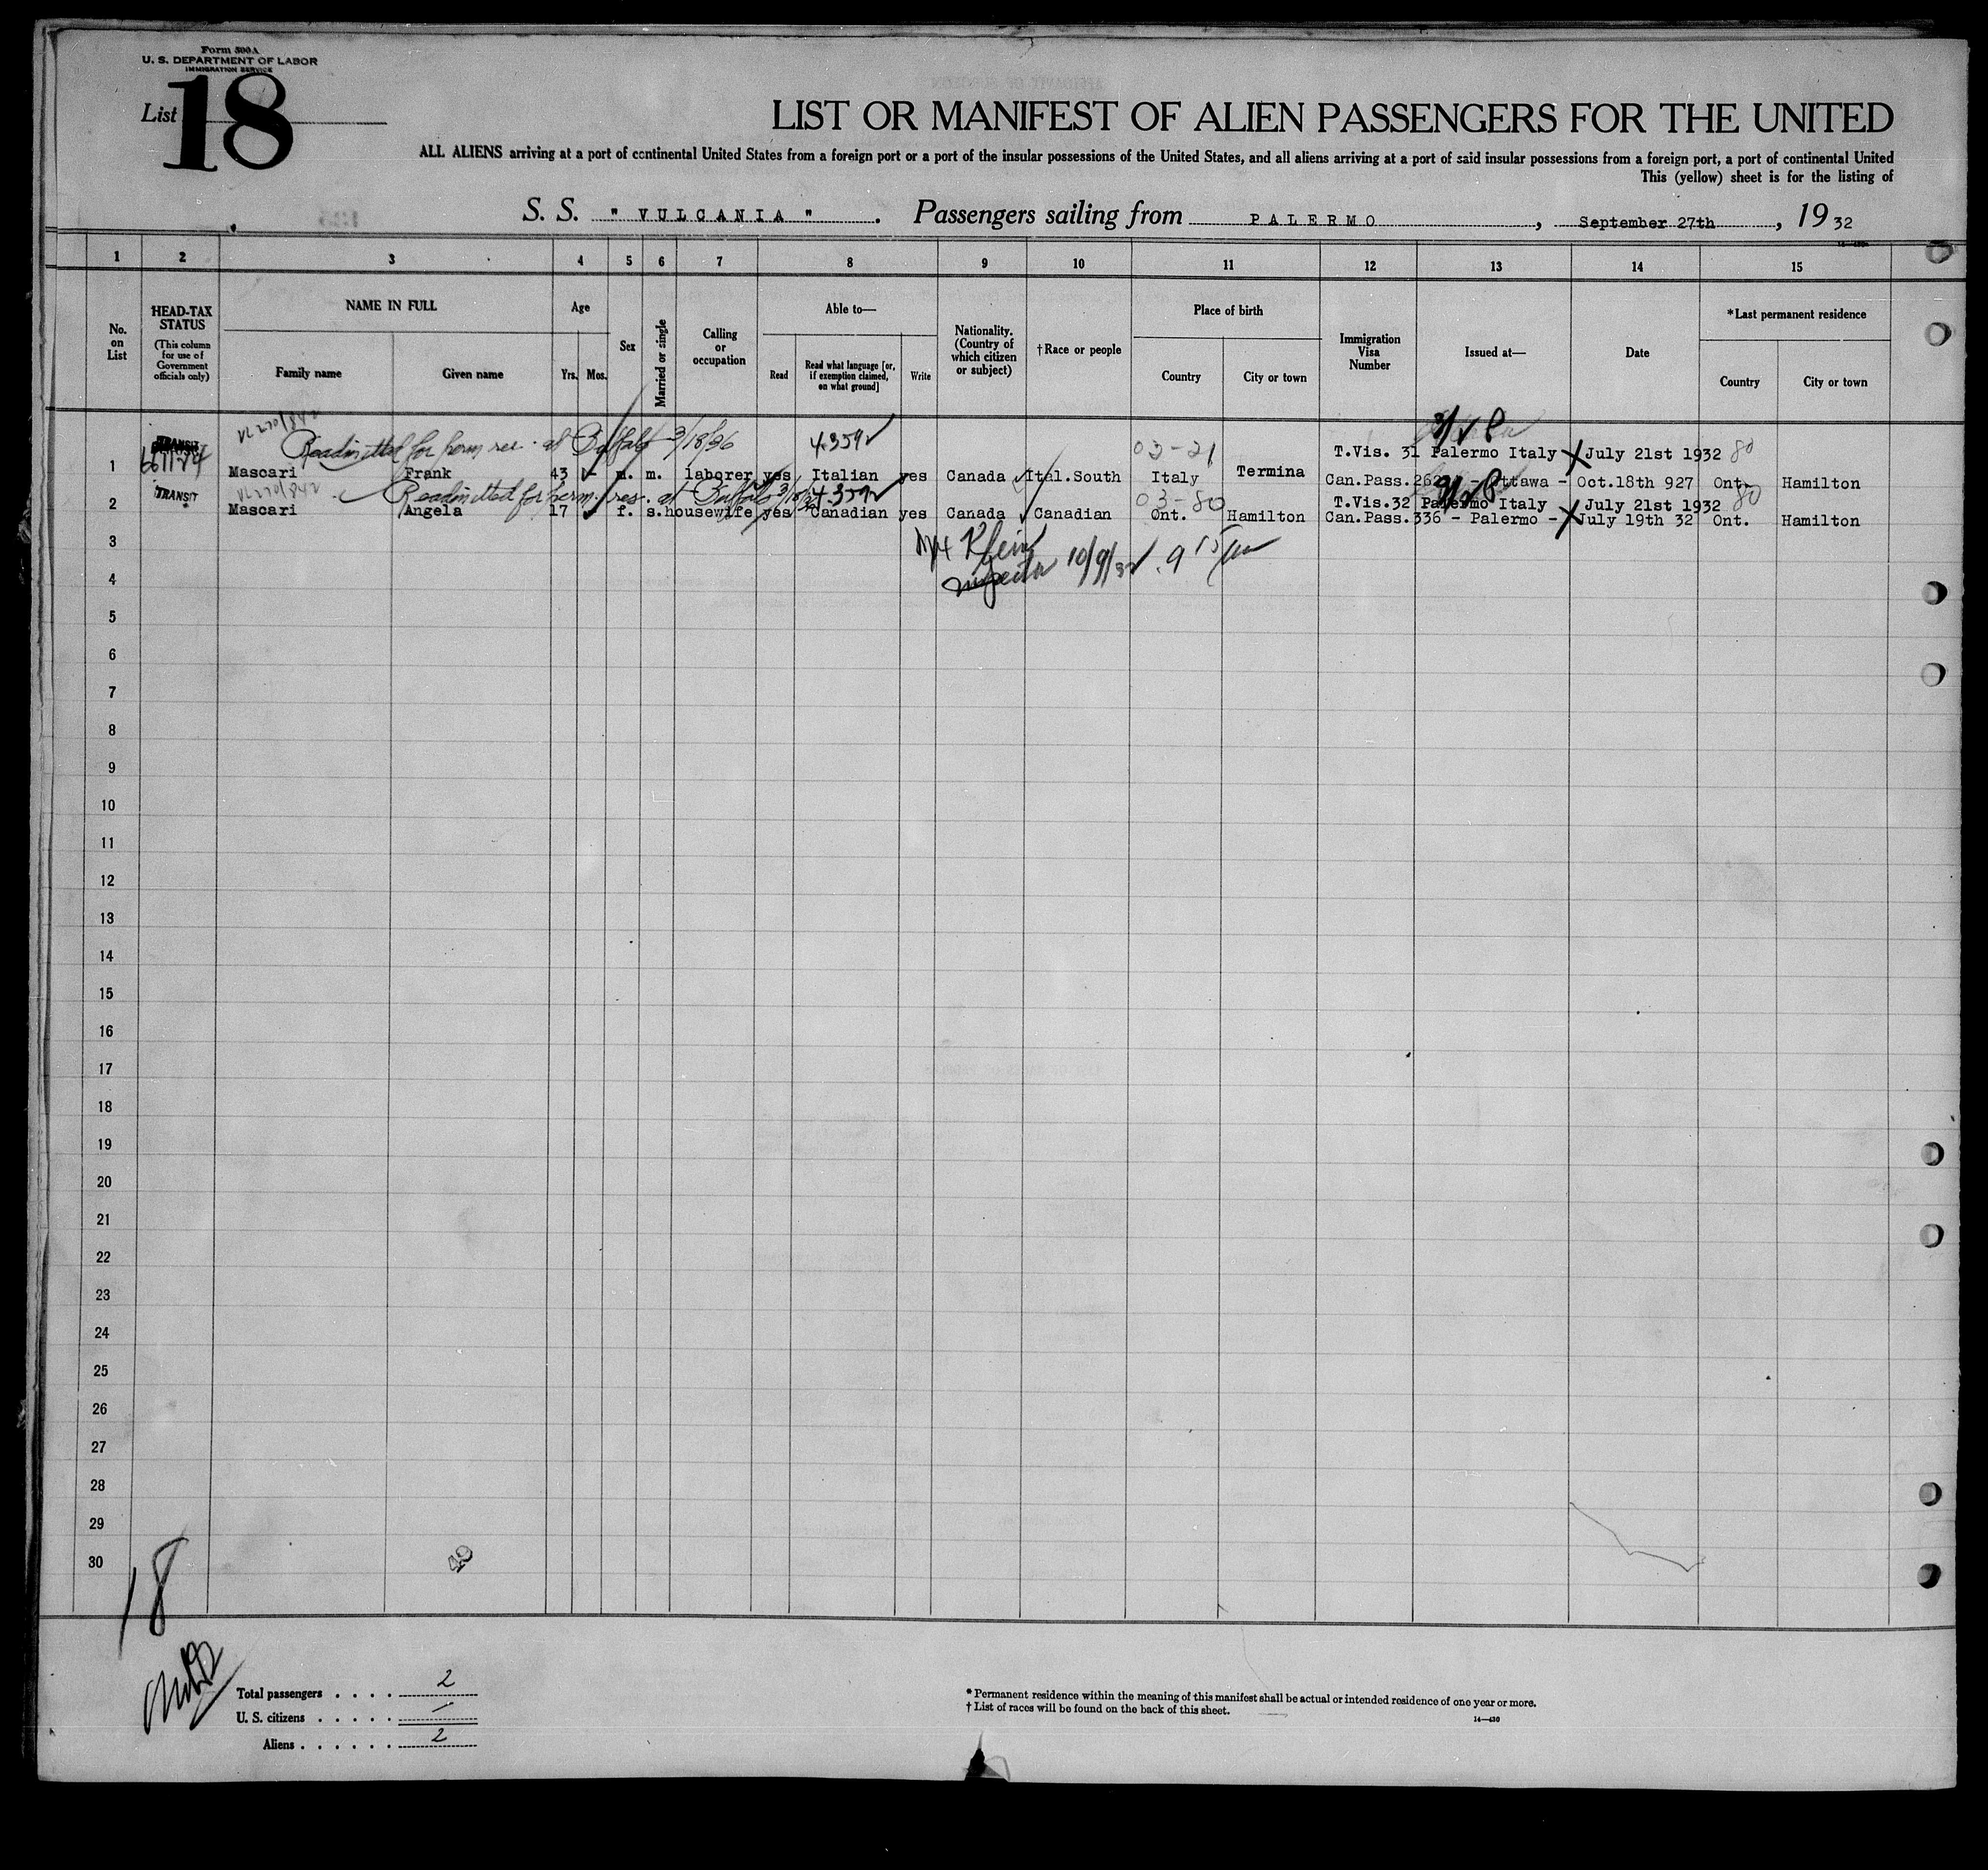 Form 500A
U. S. DEPARTMENT OF LABOR
IMMIGRATION SERVICE
List 18
LIST OR MANIFEST OF ALIEN PASSENGERS FOR THE UNITED
ALL ALIENS arriving at a port of continental United States from a foreign port or a port of the insular possessions of the United States, and all aliens arriving at a port of said insular possessions from a foreign port, a port of continental United
This (yellow) sheet is for the listing of
S. S. " VULCANIA ". Passengers sailing from PALERMO, September 27th, 1932
1 2 3 4 5 6 7 8 9 10 11 12 13 14 15
No. on List
HEAD-TAX STATUS
(This column for use of Government officials only)
NAME IN FULL
Family name
Given name
Age
Yrs. Mos.
Sex
Married or single
Calling or occupation
Able to—
Read
Read what language [or, if exemption claimed, on what ground]
Write
Nationality. (Country of which citizen or subject)
†Race or people
Place of birth
Country
City or town
Immigration Visa Number
Issued at—
Date
*Last permanent residence
Country
City or town
Readmitted for perm res. at Buffalo 3/18/36
4.359
03-21
T.Vis. 31 Palermo Italy July 21st 1932 80
1 TRANSIT Mascari Frank 43 m. m. laborer yes Italian yes Canada Ital.South Italy Termina Can.Pass. - Ottawa - Oct.18th 927 Ont. Hamilton
Readmitted for perm. res. at Buffalo 4.359
03-80
T.Vis.32 Palermo Italy July 21st 1932 80
2 TRANSIT Mascari Angela 17 f. s. housewife yes Canadian yes Canada Canadian Ont. Hamilton Can.Pass.336 - Palermo - July 19th 32 Ont. Hamilton
3
Klein
4
Inspector 10/9/32 9 15
5
6
7
8
9
10
11
12
13
14
15
16
17
18
19
20
21
22
23
24
25
26
27
28
29
30
49
18
Total passengers . . . . 2
U. S. citizens . . . . . /
Aliens . . . . . . 2
* Permanent residence within the meaning of this manifest shall be actual or intended residence of one year or more.
† List of races will be found on the back of this sheet.
14—430